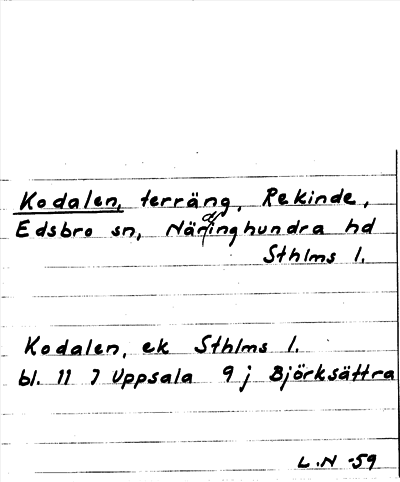 Kodalen, terräng, Rekinde,
Edsbro sn, Närdinghundra hd
Sthlms l.
Kodalen, ek Sthlms l.
bl. 11 7 Uppsala 9 j Björksättra
L.N -59